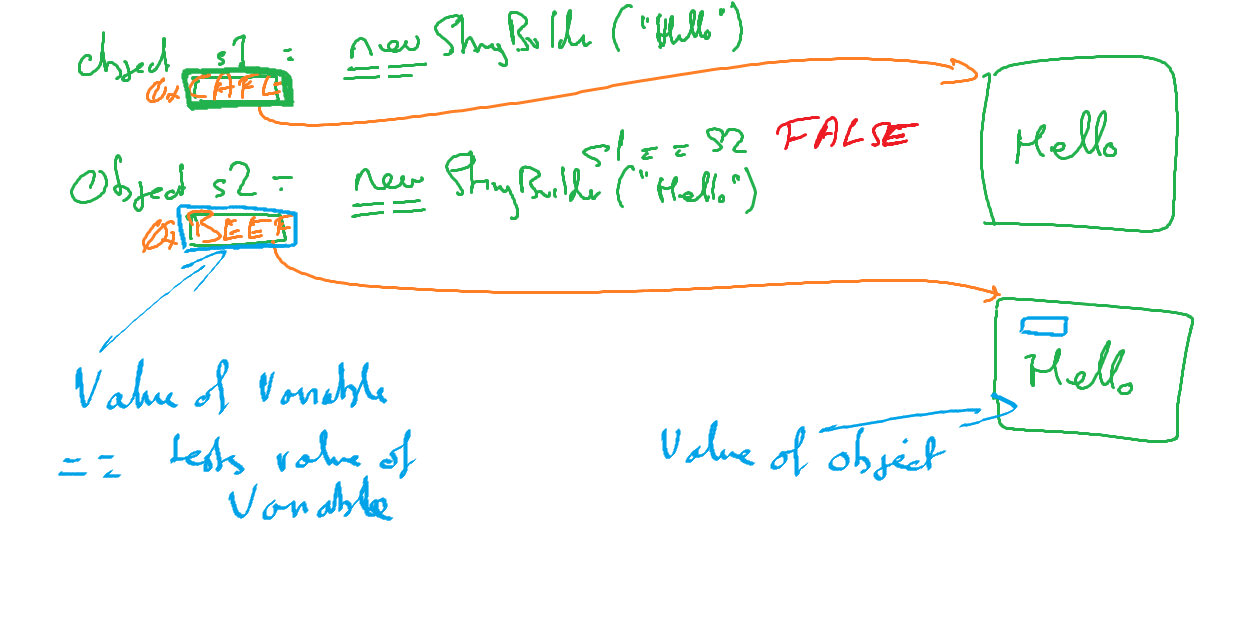 object s1 = new StringBuilder ("Hello")
0x CAFE
Hello
s1 == s2 FALSE
Object s2 = new StringBuilder ("Hello")
0x BEEF
Hello
Value of Variable
Value of object
== tests value of
Variable